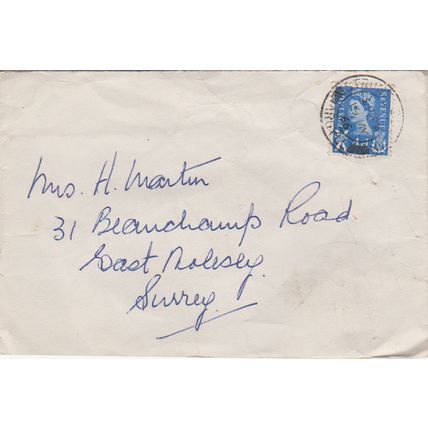 Mrs. H. Martin
31 Beauchamp Road
East Molesey.
Surrey.
REVENUE